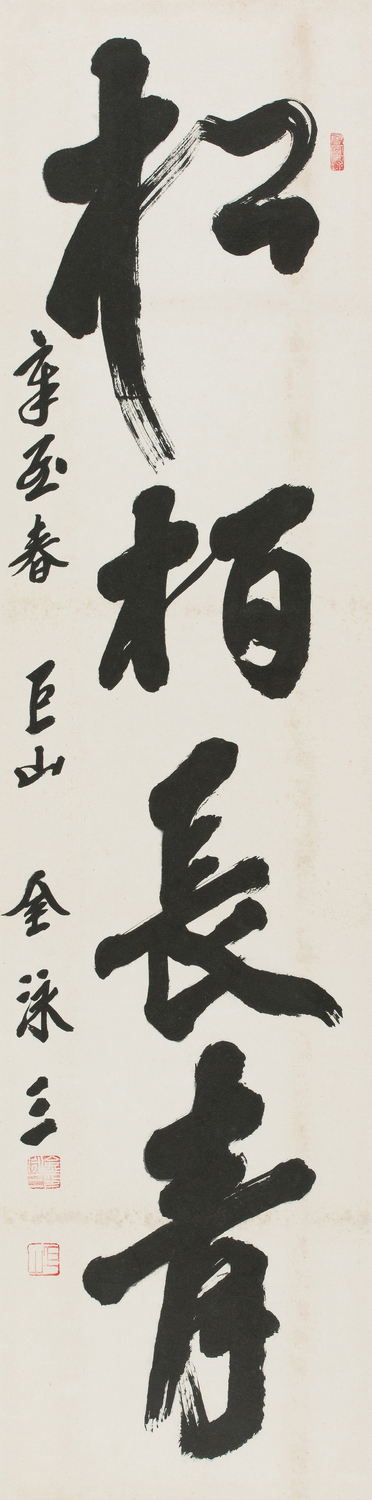 松柏長青
辛亥春 巨山 金泳三